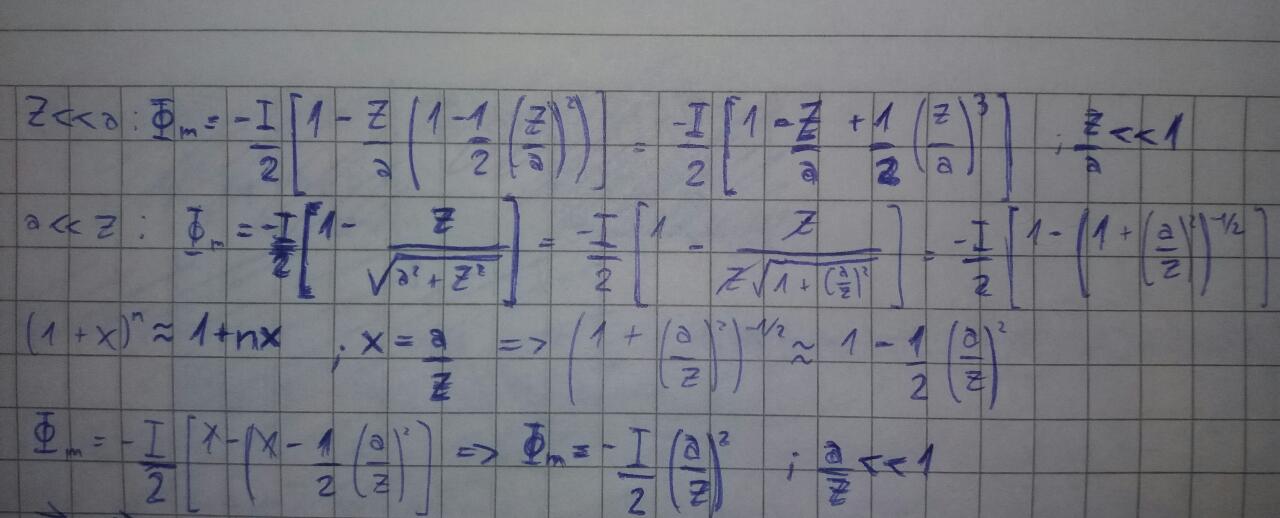 z<<a : Φₘ = -I/2 [1 - z/a (1 - 1/2 (z/a)²)] = -I/2 [1 - z/a + 1/2 (z/a)³] ; z/a << 1
a<<z : Φₘ = -I/2 [1 - z/√(a² + z²)] = -I/2 [1 - z/(z√(1 + (a/z)²))] = -I/2 [1 - (1 + (a/z)²)^(-1/2)]
(1 + x)ⁿ ≈ 1 + nx ; x = a/z => (1 + (a/z)²)^(-1/2) ≈ 1 - 1/2 (a/z)²
Φₘ = -I/2 [1 - (1 - 1/2 (a/z)²] => Φₘ = -I/2 (a/z)² ; a/z << 1